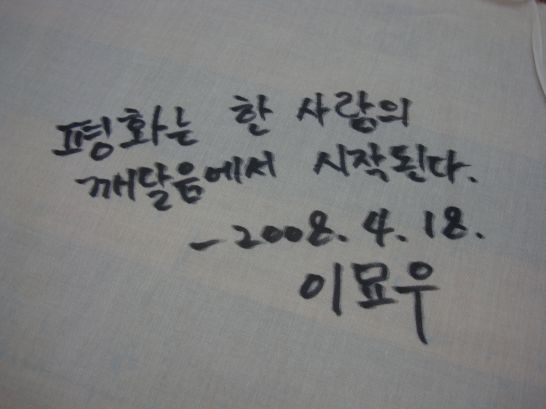 평화는 한 사람의
깨달음에서 시작된다.
- 2008. 4. 18.
이묘우